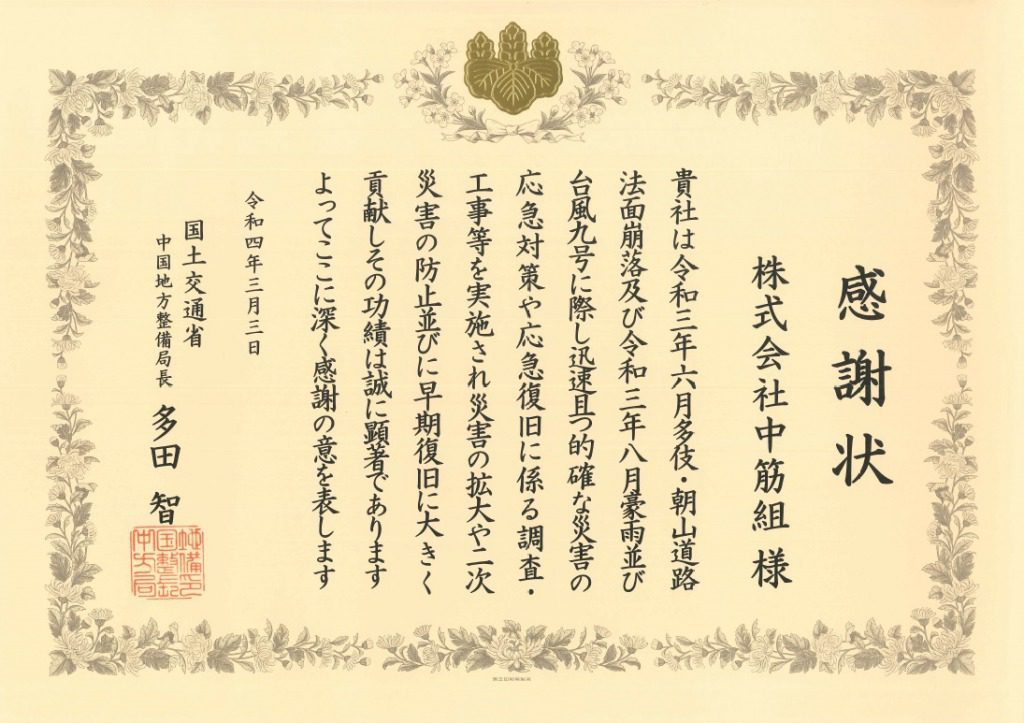 感謝状
株式会社中筋組 様
貴社は令和三年六月多伎・朝山道路
法面崩落及び令和三年八月豪雨並び
台風九号に際し迅速且つ的確な災害の
応急対策や応急復旧に係る調査・
工事等を実施され災害の拡大や二次
災害の防止並びに早期復旧に大きく
貢献しその功績は誠に顕著であります
よってここに深く感謝の意を表します
令和四年三月三日
国土交通省
中国地方整備局長 多田 智